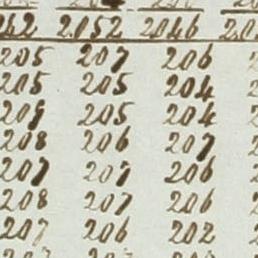 2052 2046
205 207 206
205 205 204
209 205 204
208 206 207
207 207 206
208 207 206
207 206 202